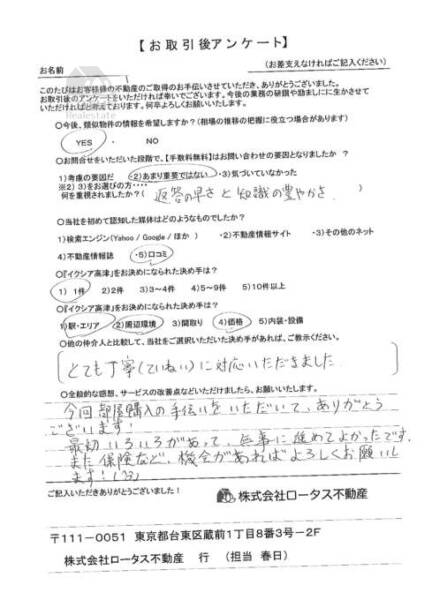 【お取引後アンケート】
お名前
（お差支えなければご記入ください）
このたびはお客様の不動産のご取得のお手伝いさせていただき、ありがとうございました。
お取引後のアンケートをいただければ幸いでございます。今後の業務の研鑽や励ましに生かさせて
いただければと存じております。何卒よろしくお願いいたします。
○今後、類似物件の情報を希望しますか？（相場の推移の把握に役立つ場合があります）
YES ・ NO
○お問合せをいただいた段階で、【手数料無料】はお問い合わせの要因となりましたか ？
1)考慮の要因だ ・2)あまり重要ではない ・3)気づいていなかった
※2）3)をお選びの方・・・・
何を重視されましたか？（ 返答の早さと知識の豊やかさ ）
○当社を初めて認知した媒体はどのようなものでしたか？
1)検索エンジン(Yahoo / Google / ほか ） ・2)不動産情報サイト ・3)その他のネット
4)不動産情報誌 ・5)口コミ
○『イクシア高津』をお決めになられた決め手は？
1) 1件 2)2件 3)3～4件 4)5～9件 5)10件以上
○『イクシア高津』をお決めになられた決め手は？
1)駅・エリア 2)周辺環境 3)間取り 4)価格 5)内装・設備
○他の仲介人と比較して、当社をご選択いただいた決め手があれば、ご教示ください。
とても丁寧(ていねい)に対応いただきました
○全般的な感想、サービスの改善点などいただけましたら、お願いいたします。
今回部屋購入の手伝いをいただいて、ありがとう
ございます！
最初いろいろがあって、無事に進めてよかったです。
また保険など、機会があればよろしくお願いし
ます！
ご記入いただきありがとうございました！
株式会社ロータス不動産
〒111－0051 東京都台東区蔵前1丁目8番3号－2F
株式会社ロータス不動産 行 （担当 春日）